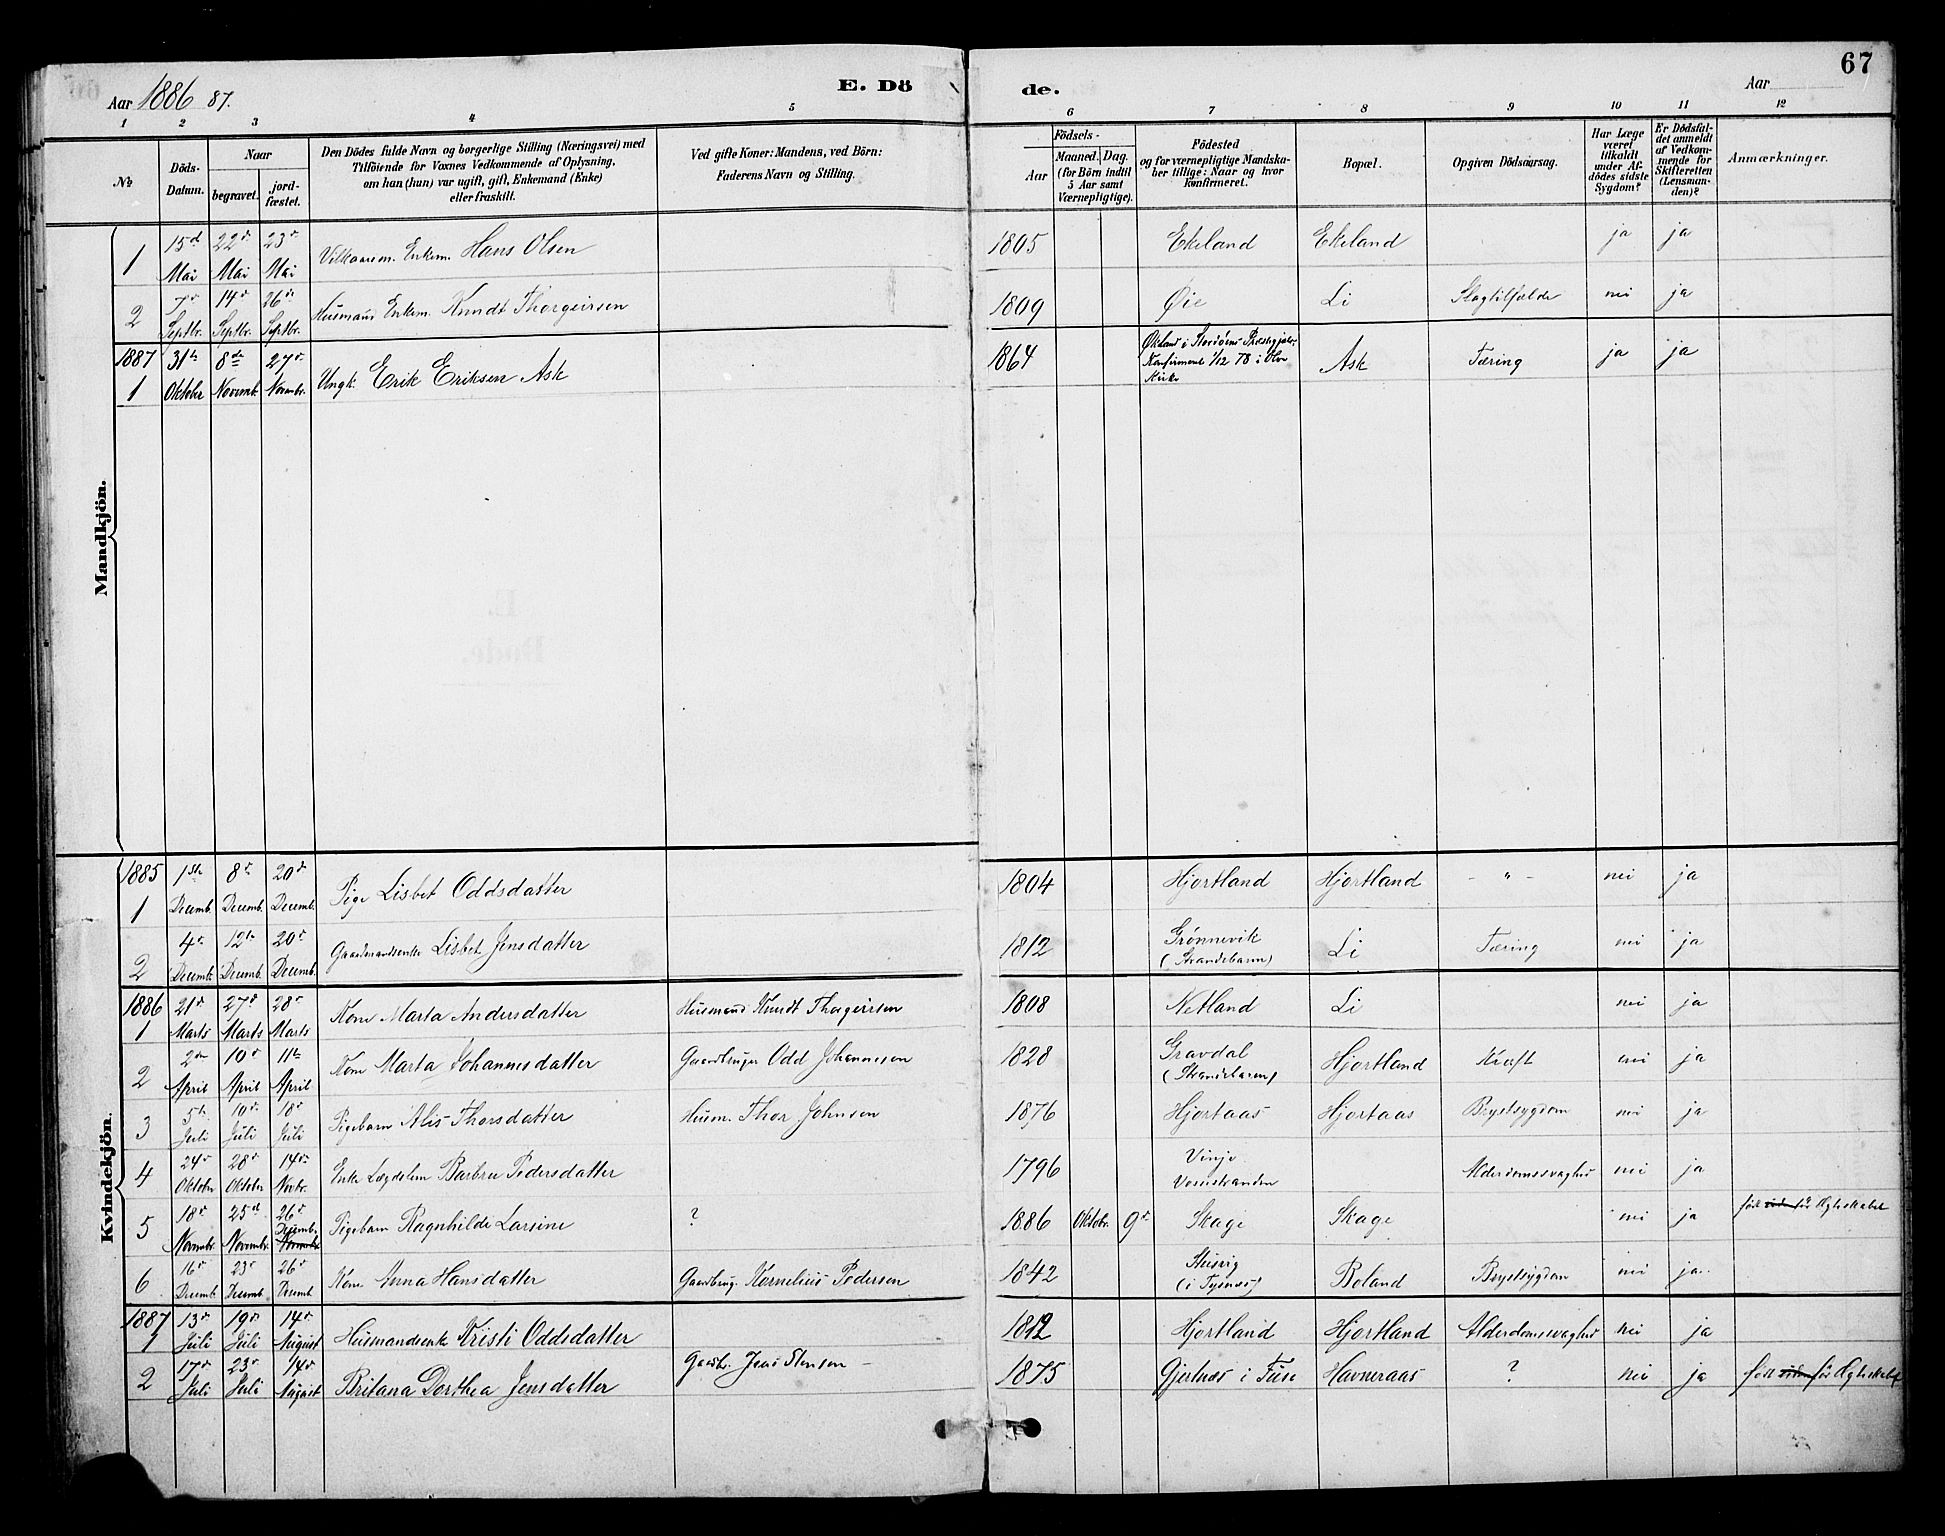 67
Aar 1886 87.
E. Dö
de.
Aar
1 2 3 4 5 6 7 8 9 10 11 12
No
Döds-Datum.
Naar
begravet.
jord-fæstet.
Den Dödes fulde Navn og borgerlige Stilling (Næringsvei) med
Tilföiende for Voxnes Vedkommende af Oplysning,
om han (hun) var ugift, gift, Enkemand (Enke)
eller fraskilt.
Ved gifte Koner: Mandens, ved Börn:
Faderens Navn og Stilling.
Födsels-
Aar
Maaned. Dag.
(for Börn indtil
5 Aar samt
Værnepligtige).
Födested
og for værnepligtige Mandska-
ber tillige: Naar og hvor
konfirmeret.
Bopæl.
Opgiven Dödsaarsag.
Har Læge
været
tilkaldt
under Af-
dödes sidste
Sygdom?
Er Dödsfal-
det anmeldt
af Vedkom-
mende for
Skifteretten
(Lensman-
den)?
Anmærkninger.
Mandkjön.
1 15d Mai 22d Mai 23d Mai Vilkaarsm. Enkem. Hans Olsen 1805 Ekeland Ekeland ja ja
2 7d Septbr. 14d Septbr. 26de Septbr. Husmand Enkem. Knudt Thorgeirsen 1809 Øie Li Slagtilfælde nei ja
1887
1 31te Oktober 8de Novemb. 27d Novembr. Ungk. Erik Eriksen Ask 1864 Økland i Stordøens Præstegjæld. Konfirmeret 1/12 78 i Kirke Ask Tæring ja ja
Kvindekjön.
1885
1 1ste Decemb. 8de Decemb. 20d Decemb. Pige Lisbet Oddsdatter 1804 Hjortland Hjortland - " - nei ja
2 4de Decemb. 12te Decemb. 20d Decemb. Gaardmandsenke Lisbet Jensdatter 1812 Grønnevik (Strandebarm) Li Tæring nei ja
1886
1 21d Marts 27d Marts 28d Marts Kone Marta Andersdatter Husmand Knudt Thorgeirsen 1808 Netland Li nei ja
2 2den April 10d April 11te April Kone Marta Johannesdatter Gaardbruger Odd Johannesen 1828 Gravdal (Strandebarm) Hjortland Kræft nei ja
3 5te Juli 10d Juli 18d Juli Pigebarn Alis Thorsdatter Husm. Thor Johnsen 1876 Hjortaas Hjortaas Brystsygdom nei ja
4 24d Oktober 28d Oktober 14de Novbr. Enke Lægdslem Barbru Pedersdatter 1796 Vinje Vossestranden Alderdomssvaghed nei ja
5 18d Novembr. 25d Novembr. 26d Decemb. Novembr Pigebarn Ragnhilde Larsine ? 1886 Oktobr. 9d Skage Skage nei ja født før Ægteskabet
6 16d Decemb. 23d Decemb. 26d Decemb. Kone Anna Hansdatter Gaardbrug. Kornelius Pedersen 1842 (i Tysnes) Boland Brystsygdom nei ja.
1887
1 13d Juli 19d Juli 14d August Husmandsenke Kristi Oddsdatter 1812 Hjortland Hjortland Alderdomssvaghed nei ja
2 17d Juli 23d Juli 14d August Britana Dorthea Jensdatter Gaardbr. Jens Stensen - 1875 Gjertnes i Fuse Havneraas ? nei ja født før Ægteskabet